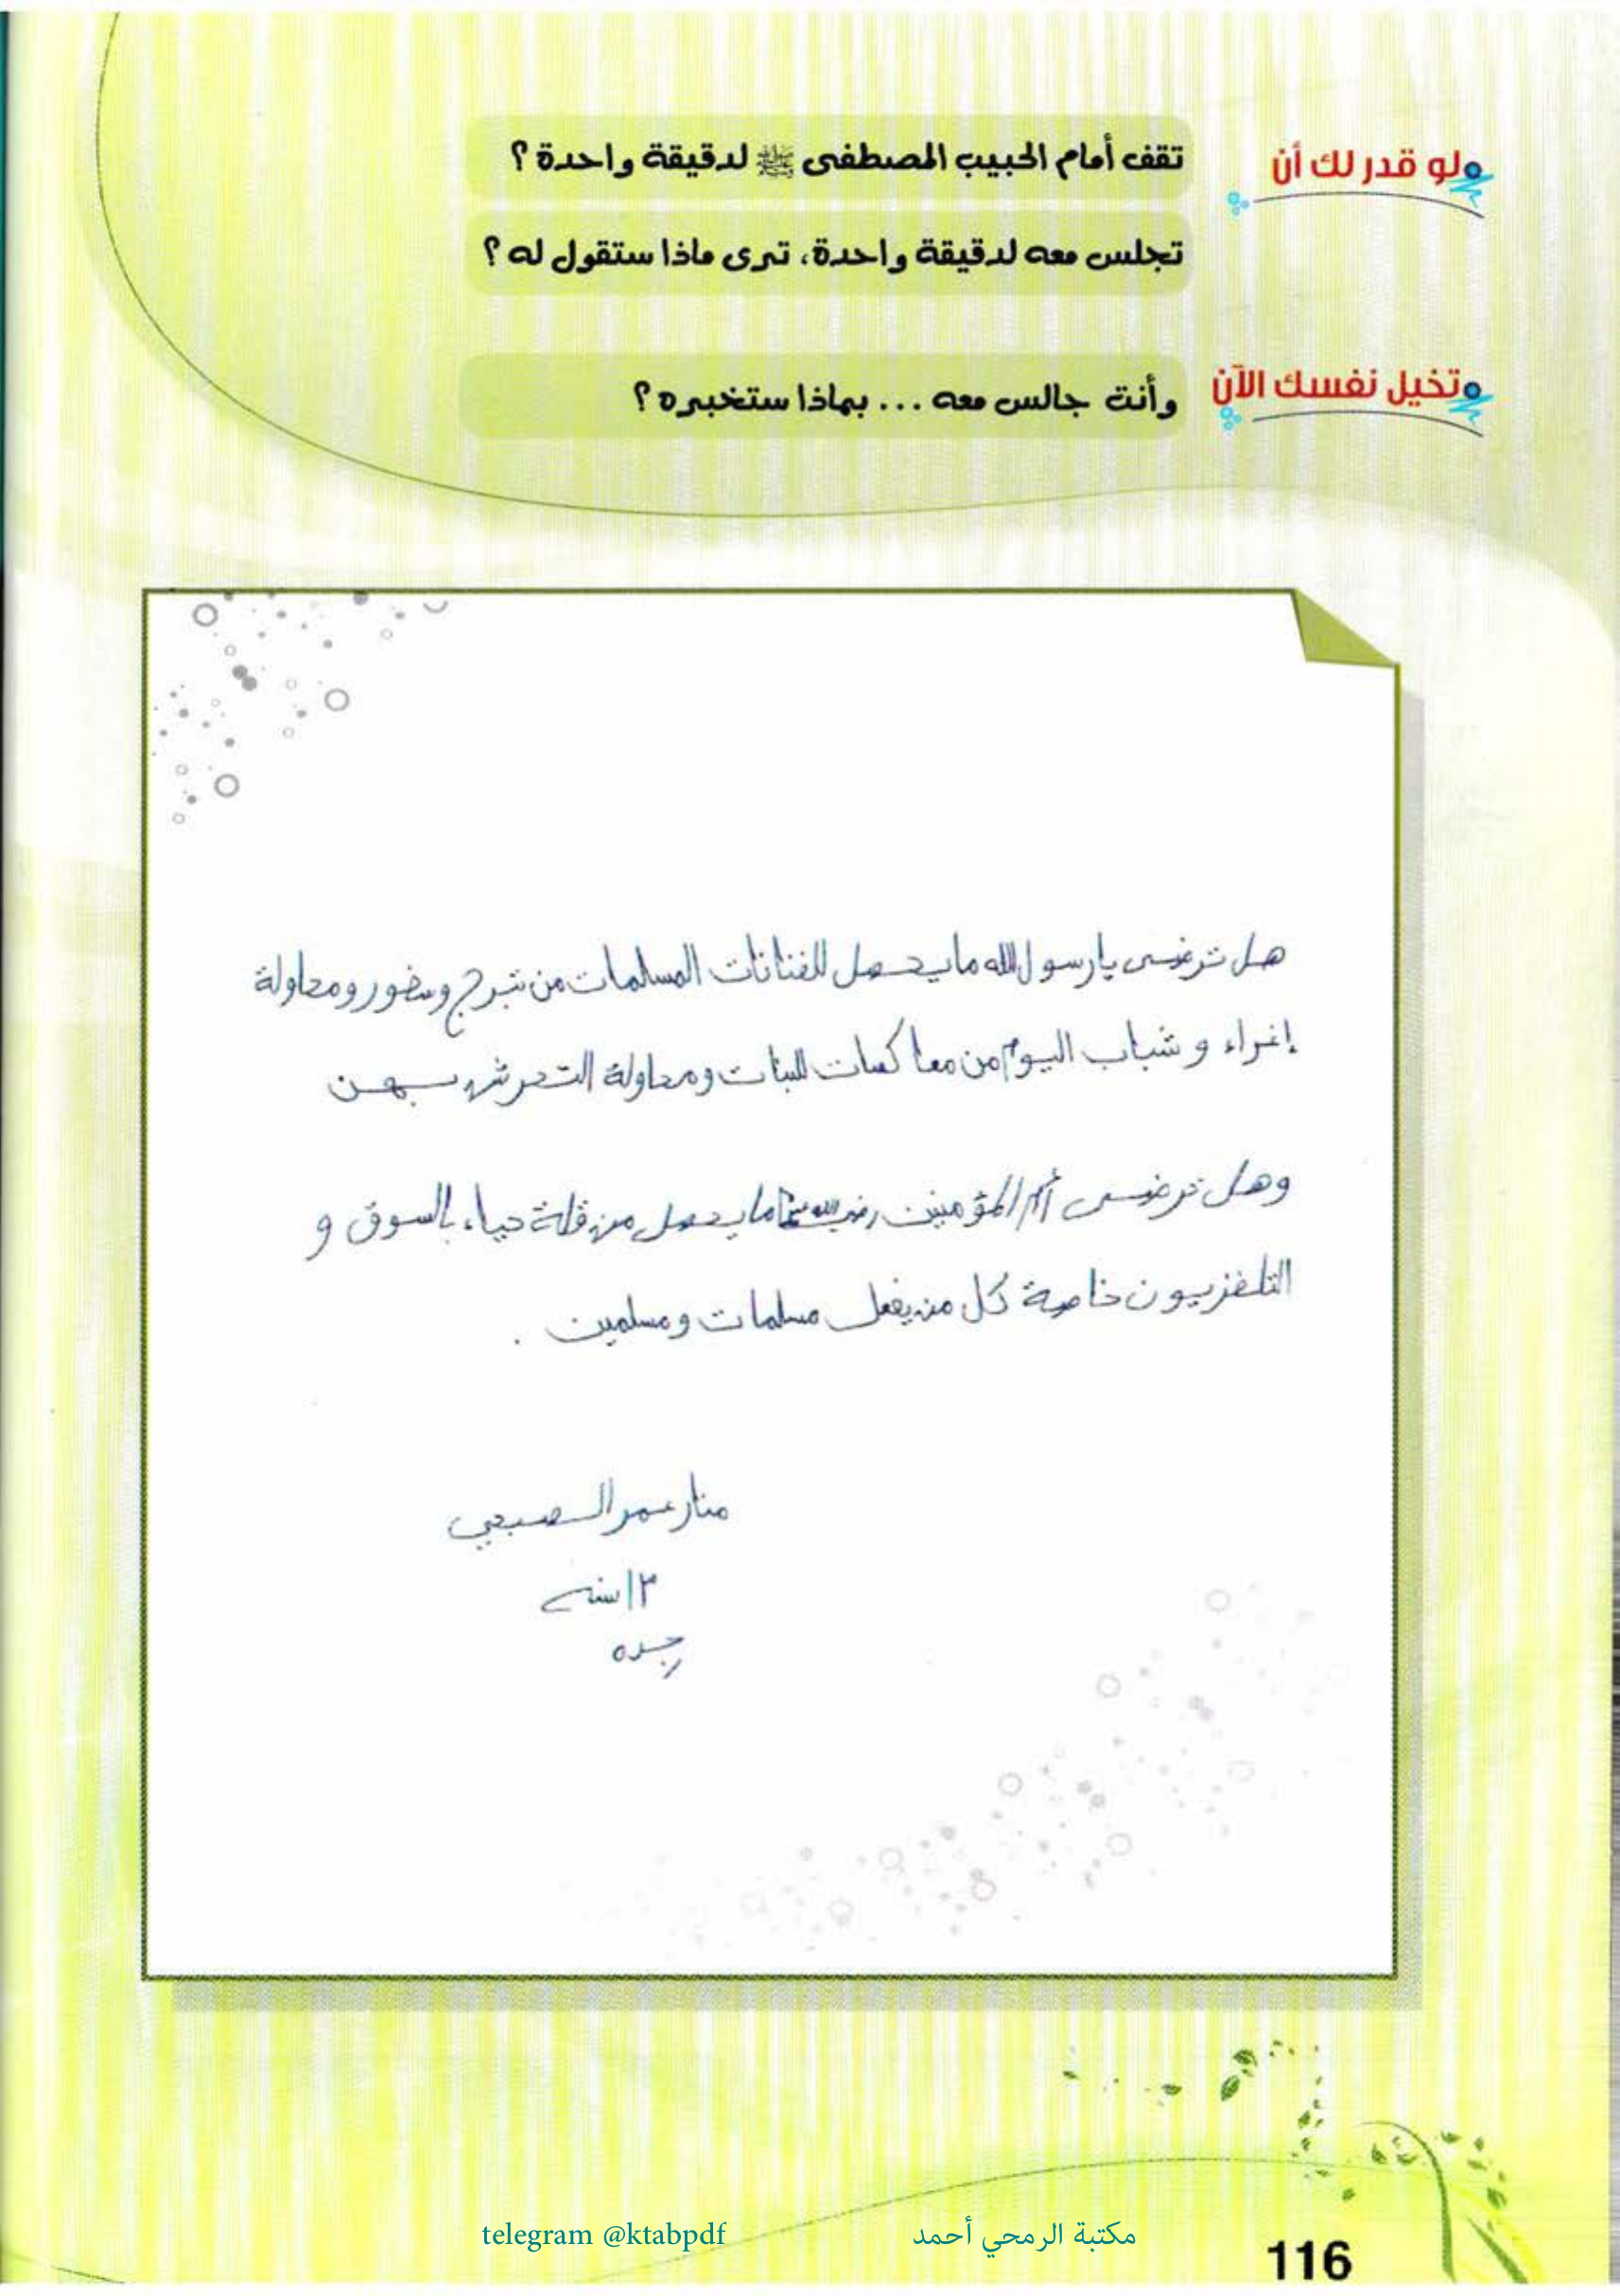 لو قدر لك أن
تقف أمام الحبيب المصطفى ﷺ لدقيقة واحدة ؟
تجلس معه لدقيقة واحدة، ترى ماذا ستقول له ؟
تخيل نفسك الآن
وأنت جالس معه ... بماذا ستخبره ؟
هل ترضى يا رسول الله ما يحصل للفنانات المسلمات من تبرج وسفور ومحاولة
إغراء و شباب اليوم من معاكسات للبنات ومحاولة التحرش بهن
وهل ترضى أم المؤمنين رضي الله عنها ما يحصل من قلة حياء بالسوق و
التلفزيون خاصة كل من يفعل مسلمات ومسلمين .
منار عمر الصبحي
١٣ سنه
جده
telegram @ktabpdf مكتبة الرمحي أحمد
116